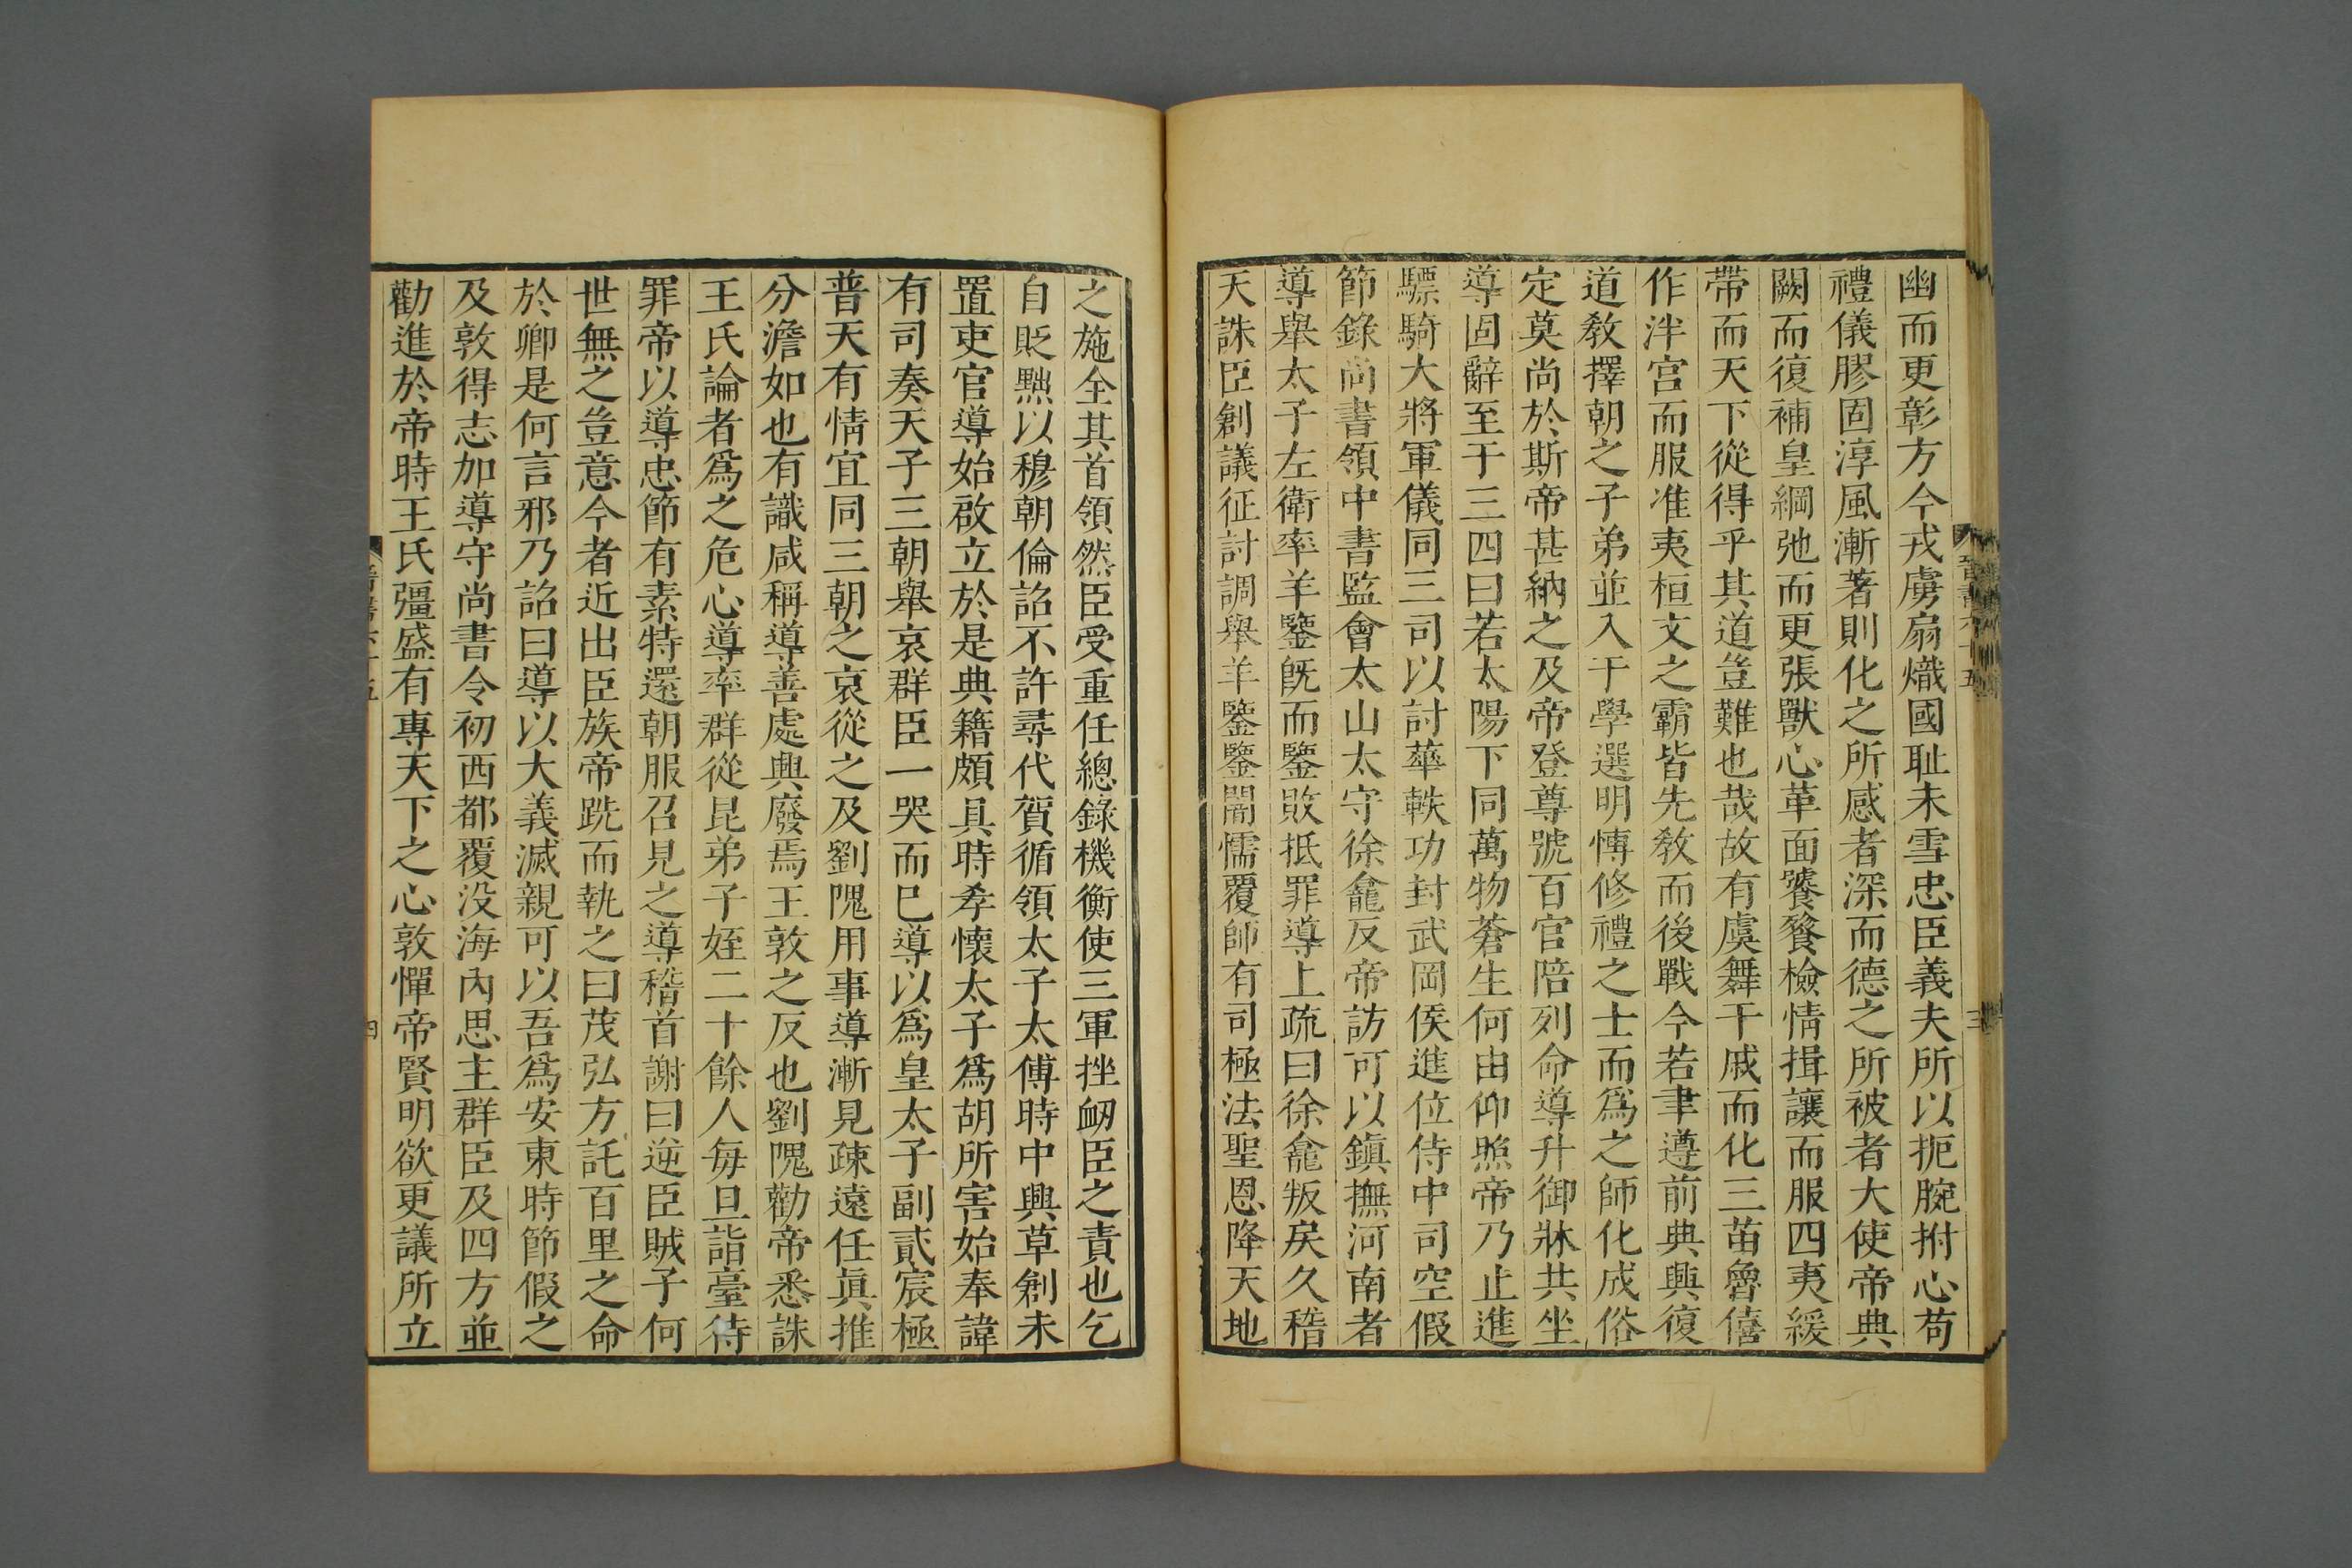 幽而更彰方今戎虜扇熾國耻未雪忠臣義夫所以扼腕拊心苟
禮儀膠固淳風漸著則化之所感者深而德之所被者大使帝典
闕而復補皇綱弛而更張獸心革面饕餮檢情揖讓而服四夷緩
帶而天下從得乎其道豈難也哉故有虞舞干戚而化三苗魯僖
作泮宫而服淮夷桓文之霸皆先敎而後戰今若聿遵前典興復
道敎擇朝之子弟並入于學選明慱修禮之士而爲之師化成俗
定莫尚於斯帝甚納之及帝登尊號百官陪列命導升御牀共坐
導固辭至于三四曰若太陽下同萬物蒼生何由仰照帝乃止進
驃騎大將軍儀同三司以討華軼功封武岡侯進位侍中司空假
節錄尚書領中書監會太山太守徐龕反帝訪可以鎭撫河南者
導舉太子左衛率羊鑒旣而鑒敗抵罪導上疏曰徐龕叛戾久稽
天誅臣創議征討調舉羊鑒鑒闇懦覆師有司極法聖恩降天地
之施全其首領然臣受重任總錄機衡使三軍挫衂臣之責也乞
自貶黜以穆朝倫詔不許尋代賀循領太子太傅時中興草創未
置吏官導始啟立於是典籍頗具時孝懷太子爲胡所害始奉諱
有司奏天子三朝舉哀群臣一哭而巳導以爲皇太子副貳宸極
普天有情宜同三朝之哀從之及劉隗用事導漸見疎遠任眞推
分澹如也有識咸稱導善處興廢焉王敦之反也劉隗勸帝悉誅
王氏論者爲之危心導率群從昆弟子姪二十餘人每旦詣臺待
罪帝以導忠節有素特還朝服召見之導稽首謝曰逆臣賊子何
世無之豈意今者近出臣族帝跣而執之曰茂弘方託百里之命
於卿是何言邪乃詔曰導以大義滅親可以吾爲安東時節假之
及敦得志加導守尚書令初西都覆没海內思主群臣及四方並
勸進於帝時王氏彊盛有專天下之心敦憚帝賢明欲更議所立
晉書六十五
三
四